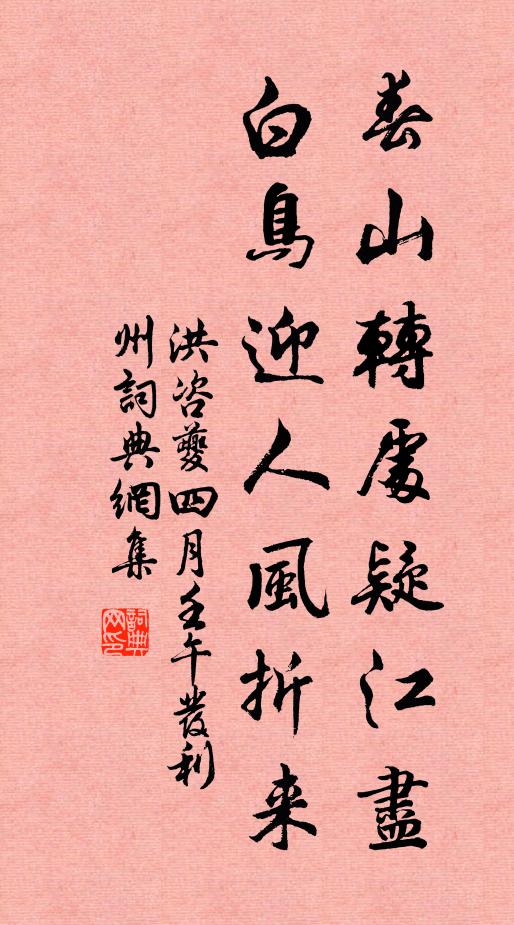 春山轉處疑江盡
白鳥迎人風折来
洪咨夔四月壬午發利
州詞典網集
詞典網印